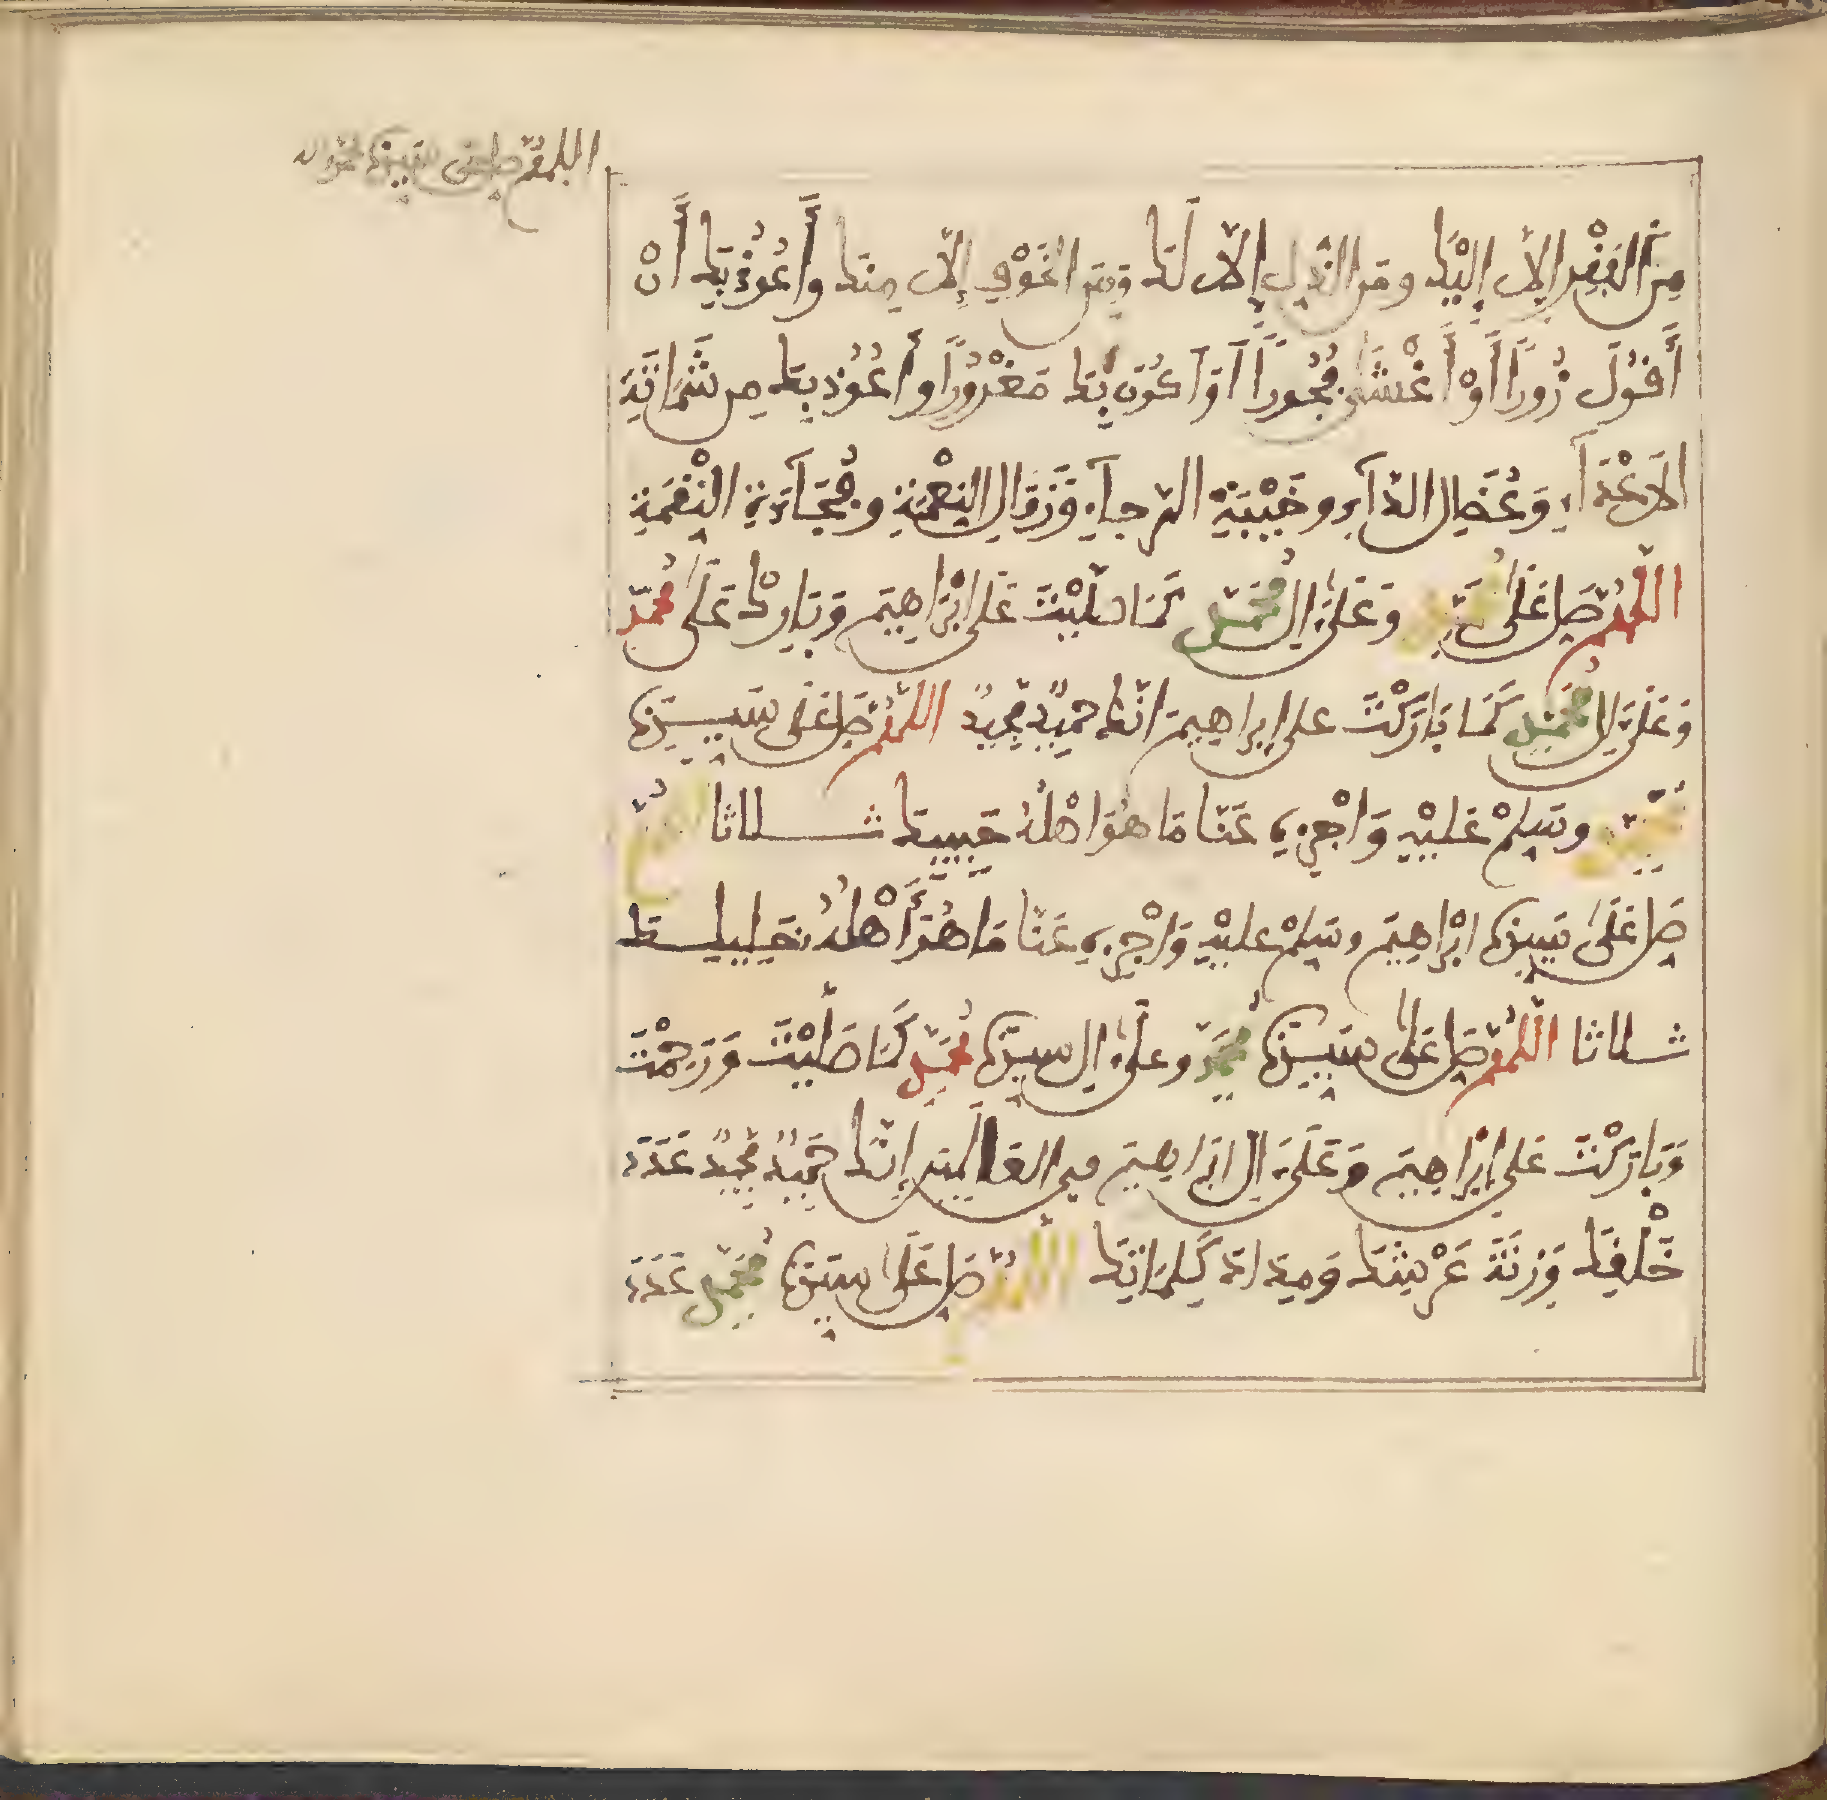 اللهم صل على سيدنا محمد
مِنَ الْفَقْرِ الاَّ إِلَيْكَ ومَنَ الذُّلِ إِلاَّ لَكَ وَمِنَ الْخَوْفِ إِلاَّ مِنكَ وأَعُوذُ بِكَ أَنْ
أَقُولَ زُوراً أَوْ أَغْشَى فُجُوراً أَوَ اَكُونَ بِكَ مَغْرُوراً وأَعُوذُ بِكَ مِن شَمَاتَةِ
الاَعْدَآءِ وَعُضَالِ الدَّآءِ وخَيْبَةِ الرَّجآءِ وَزَوَالِ النِّعْمَةِ وفُجَآءَةِ النِّقْمَةِ
اللَّهُمَّ صَلِ عَلَى مُحَمَّدٍ وَعَلَى ءَالِ مُحَمَّدٍ كَمَا صَلَّيْتَ عَلَى ابْرَاهِيمَ وَبَارِكْ عَلَى مُحَمَّدٍ
وَعَلَى ءَالِ مُحَمَّدٍ كَمَا بَارَكْتَ على إبراهِيمَ انَّكَ حَمِيدٌ مَجِيدٌ اللَّهُمَّ صَلِ عَلَى سَيِّدِنَا
مُحَمَّدٍ وسَلِّمْ عَلَيْهِ وَاجْزِهِ عَنَّا مَا هُوَ اهْلُهُ حَبِيبِكَ ثلاثا اللَّهُمَّ
صَلِ عَلَى سَيِّدِنَا ابْرَاهِيمَ وسَلِّمْ عليْهِ وَاجْزِهِ عَنَّا مَا هُوَ أَهْلُهُ خَلِيلِكَ
ثلاثا اللَّهُمَّ صَلِ عَلَى سَيِّدِنَا مُحَمَّدٍ وعلَى ءَالِ سيِّدِنَا مُحَمَّدٍ كَمَا صَلَّيْتَ وَرَحِمْتَ
وَبَارَكْتَ عَلَى إِبْرَاهِيمَ وَعَلَى ءَالِ ابْرَاهِيمَ فِي العَالَمِينَ إِنَّكَ حَمِيدٌ مَجِيدٌ عَدَدَ
خَلْقِكَ وَزِنَةَ عَرْشِكَ وَمِدَادَ كَلِمَاتِكَ اللَّهُمَّ صَلِ عَلَى سيِّدِنَا مُحَمَّدٍ عَدَدَ